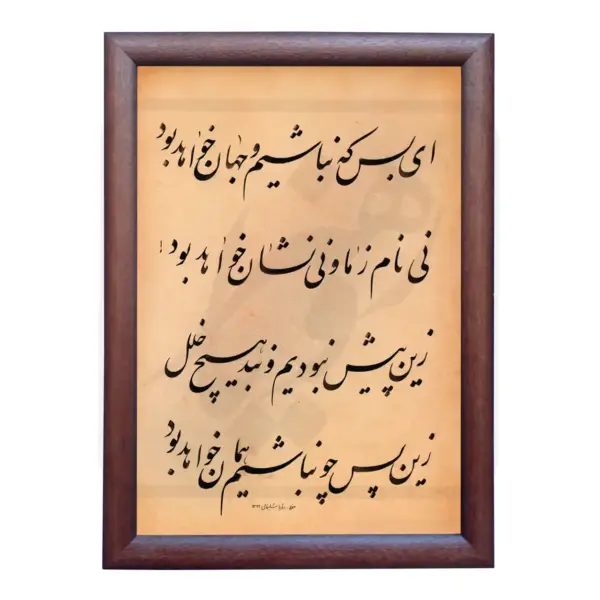 ای بس که نباشیم و جهان خواهد بود
نی نام ز ما و نی نشان خواهد بود !
زین پیش نبودیم و نبد هیچ خلل
زین پس چو نباشیم همان خواهد بود